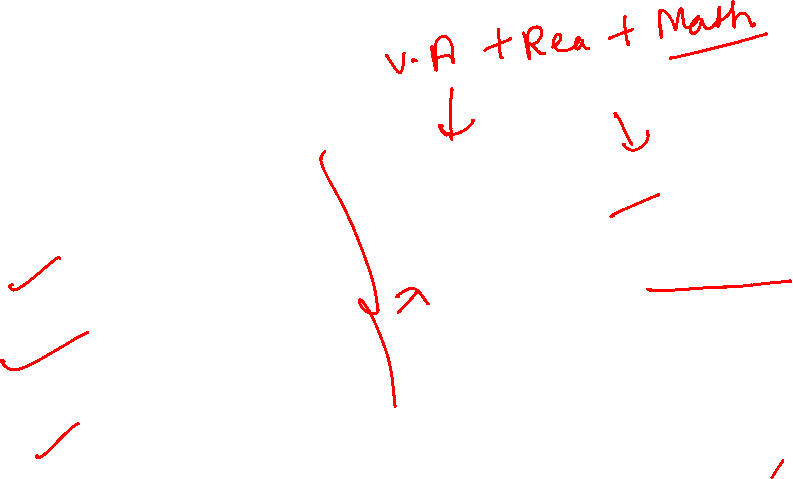 V.A + Rea + Math